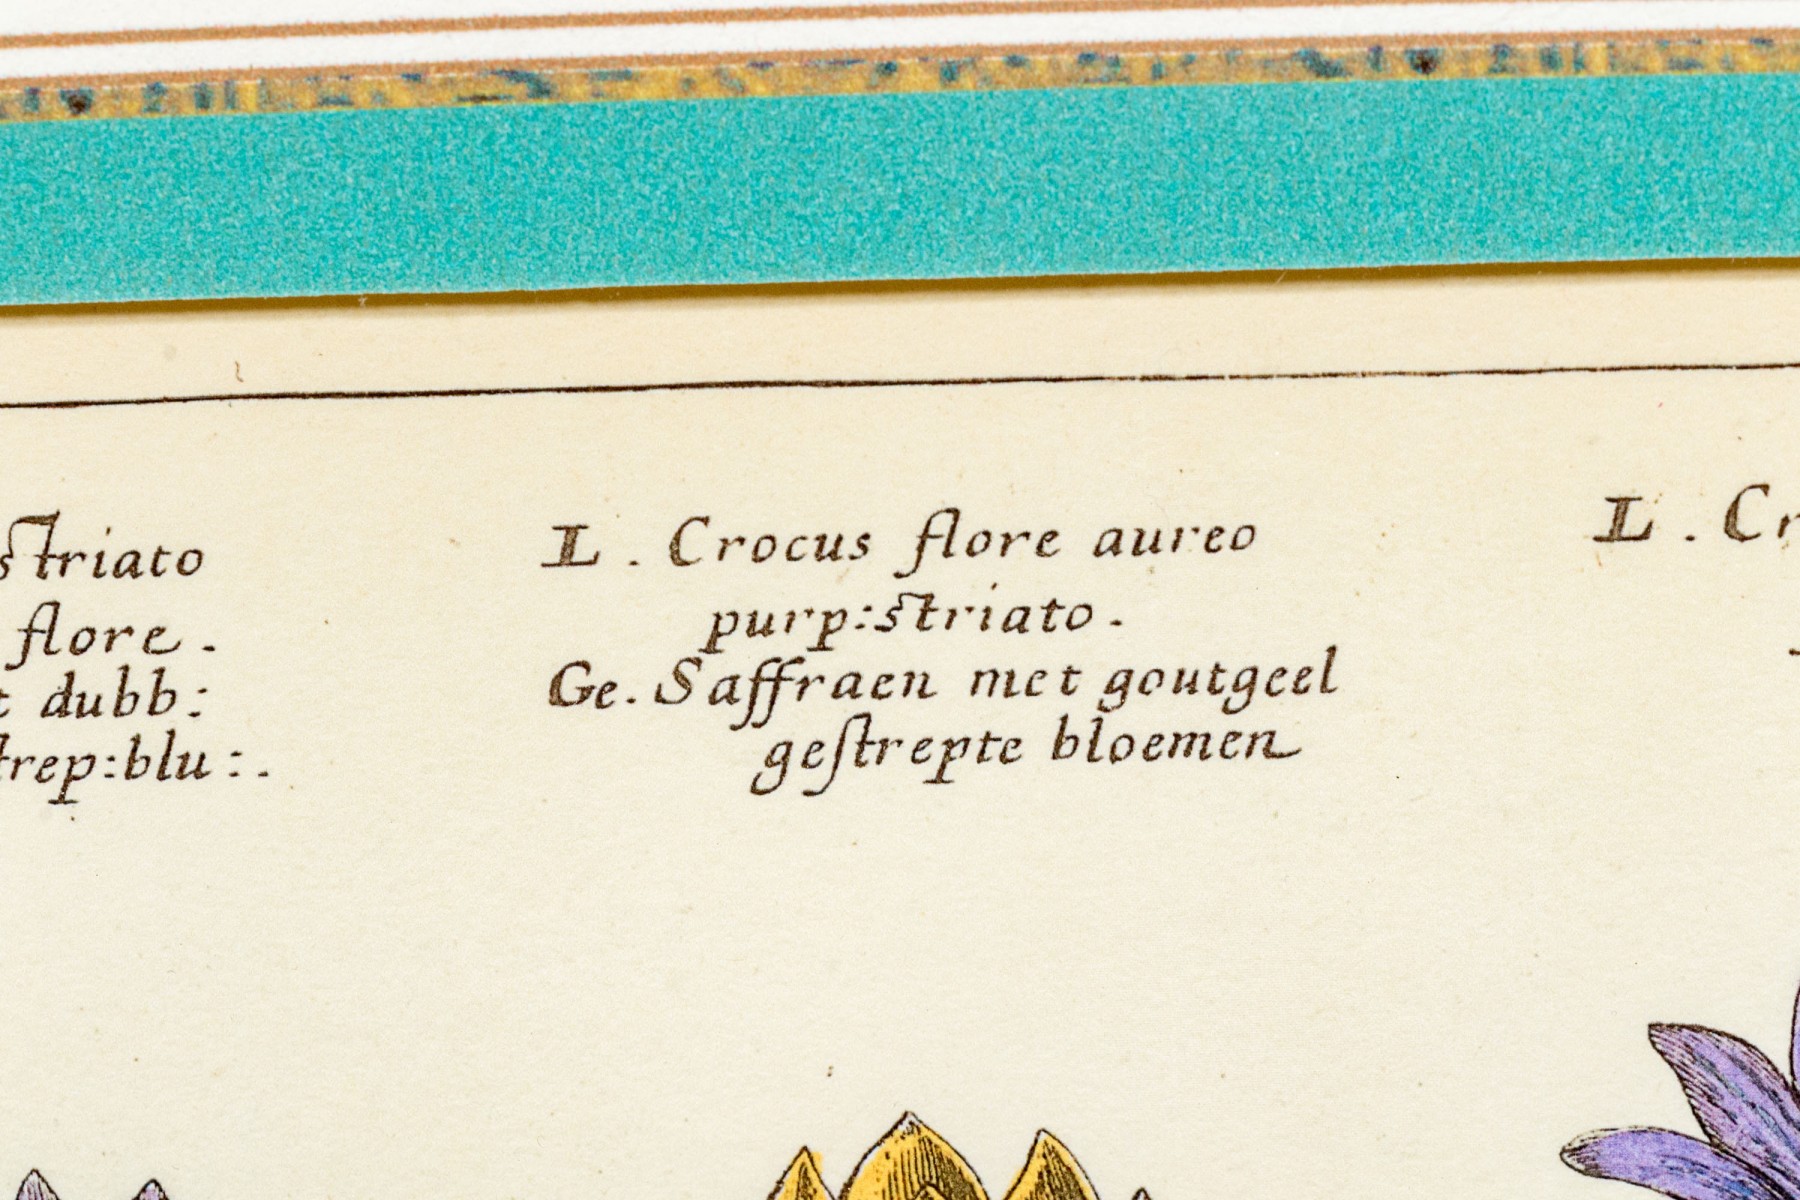 striato
flore.
dubb:
trep:blu:.
L. Crocus flore aureo
purp:striato.
Ge. Saffraen met goutgeel
geſtrepte bloemen
L. Cr